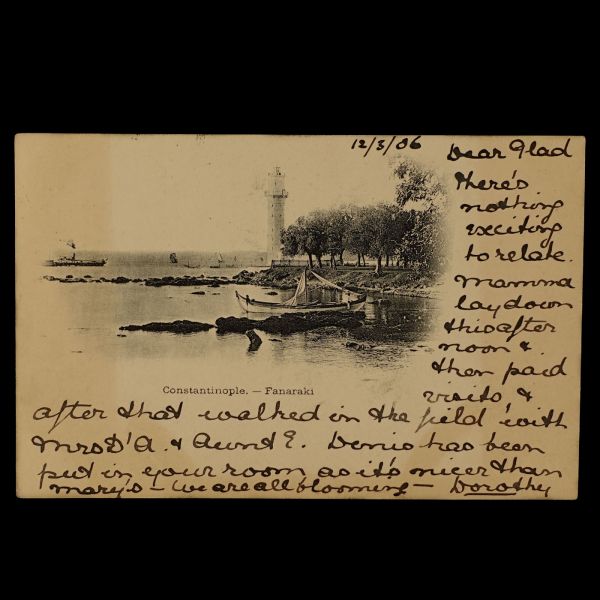 12/3/06
Dear Glad
there's
nothing
exciting
to relate.
Mamma
lay down
this after
noon &
then paid
visits &
Constantinople. — Fanaraki
after that walked in the field with
Mrs D'A. & Aunt E. Denis has been
put in your room as it's nicer than
mary's - we are all blooming - Dorothy